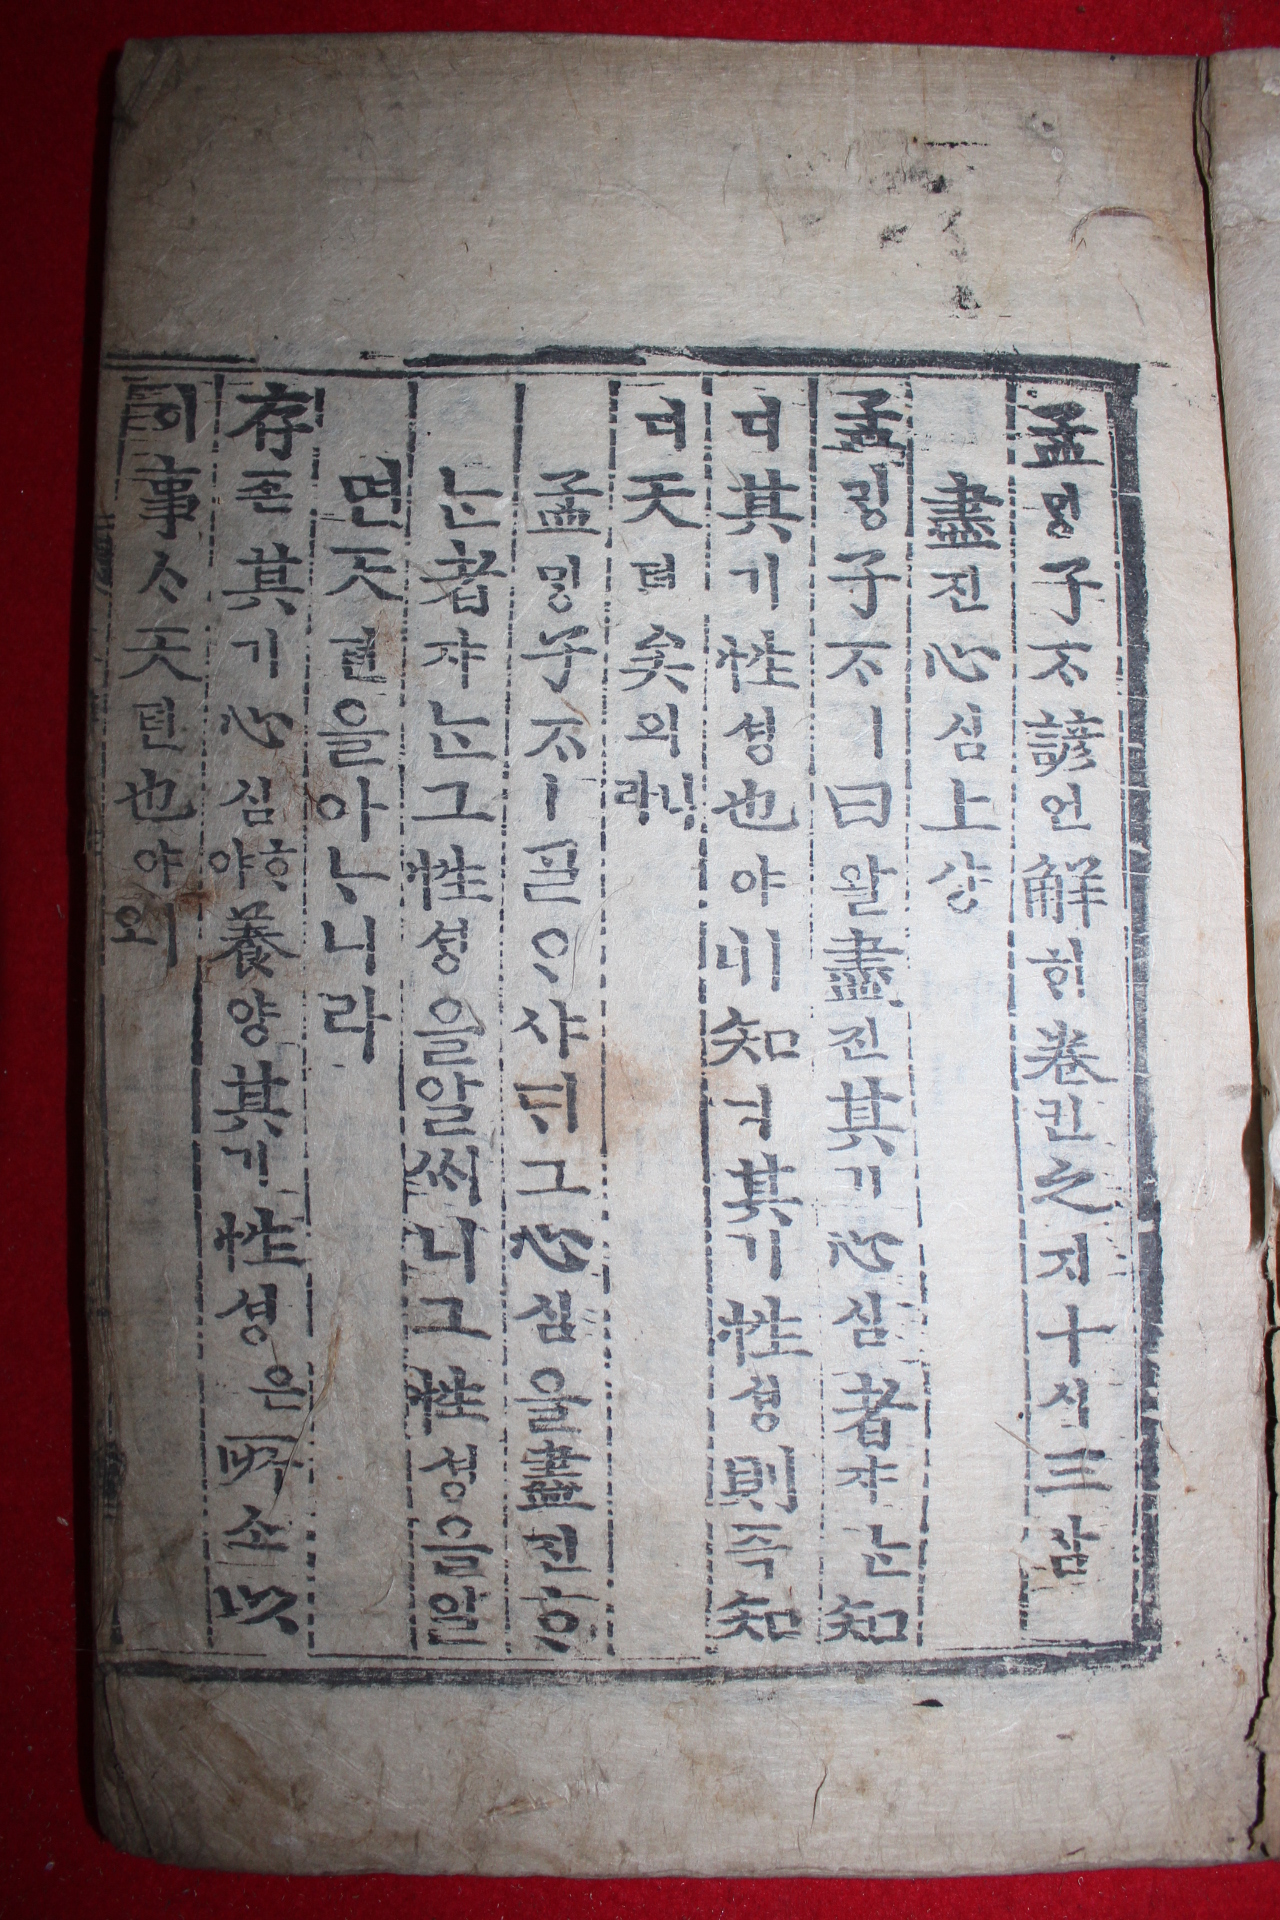 孟ᄆᆡᆼ子ᄌᆞ諺언解ᄒᆡ卷권之지十십三삼
盡진心심上샹
孟ᄆᆡᆼ子ᄌᆞㅣ曰왈盡진其기心심者쟈ᄂᆞᆫ知
디其기性셩也야ㅣ니知디其기性셩則즉知
디天텬矣의니라
孟ᄆᆡᆼ子ᄌᆞㅣᄀᆞᆯᄋᆞ샤ᄃᆡ그心심을盡진ᄒᆞ
ᄂᆞᆫ者쟈ᄂᆞᆫ그性셩을알씨니그性셩을알
면天텬을아ᄂᆞ니라
存존其기心심ᄒᆞ야養양其기性셩은所소以
이事ᄉᆞ天텬也야ㅣ오